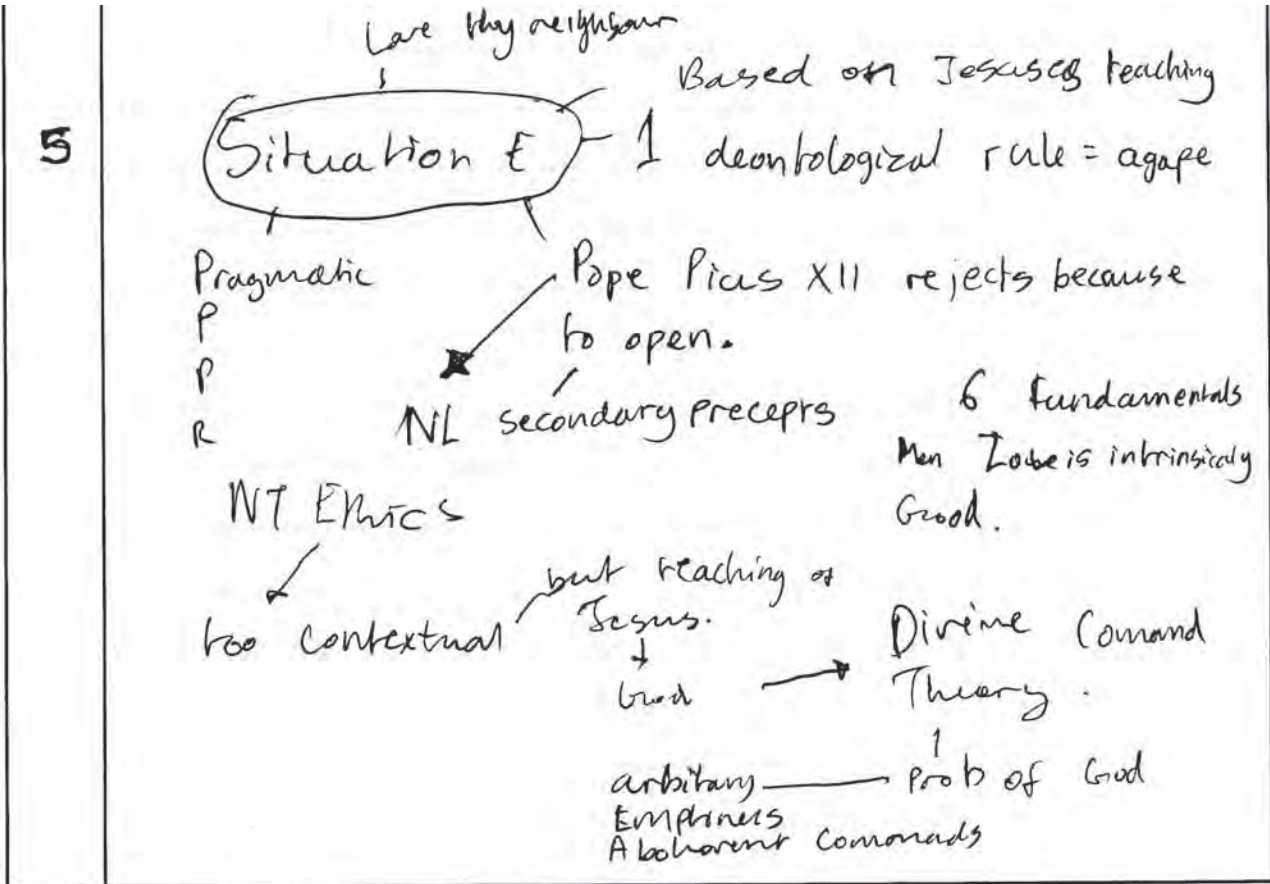 Love thy neighbour
Based on Jesuses teaching
5
Situation E
1 deontological rule = agape
Pragmatic
P
P
R
Pope Pius XII rejects because
to open.
NL secondary precepts
6 fundamentals
Love is intrinsicaly
Good.
NT Ethics
too contextual
but teaching of
Jesus.
God
Divine Comand
Theory.
Prob of God
arbitary
Emptiness
Abohorent Commads